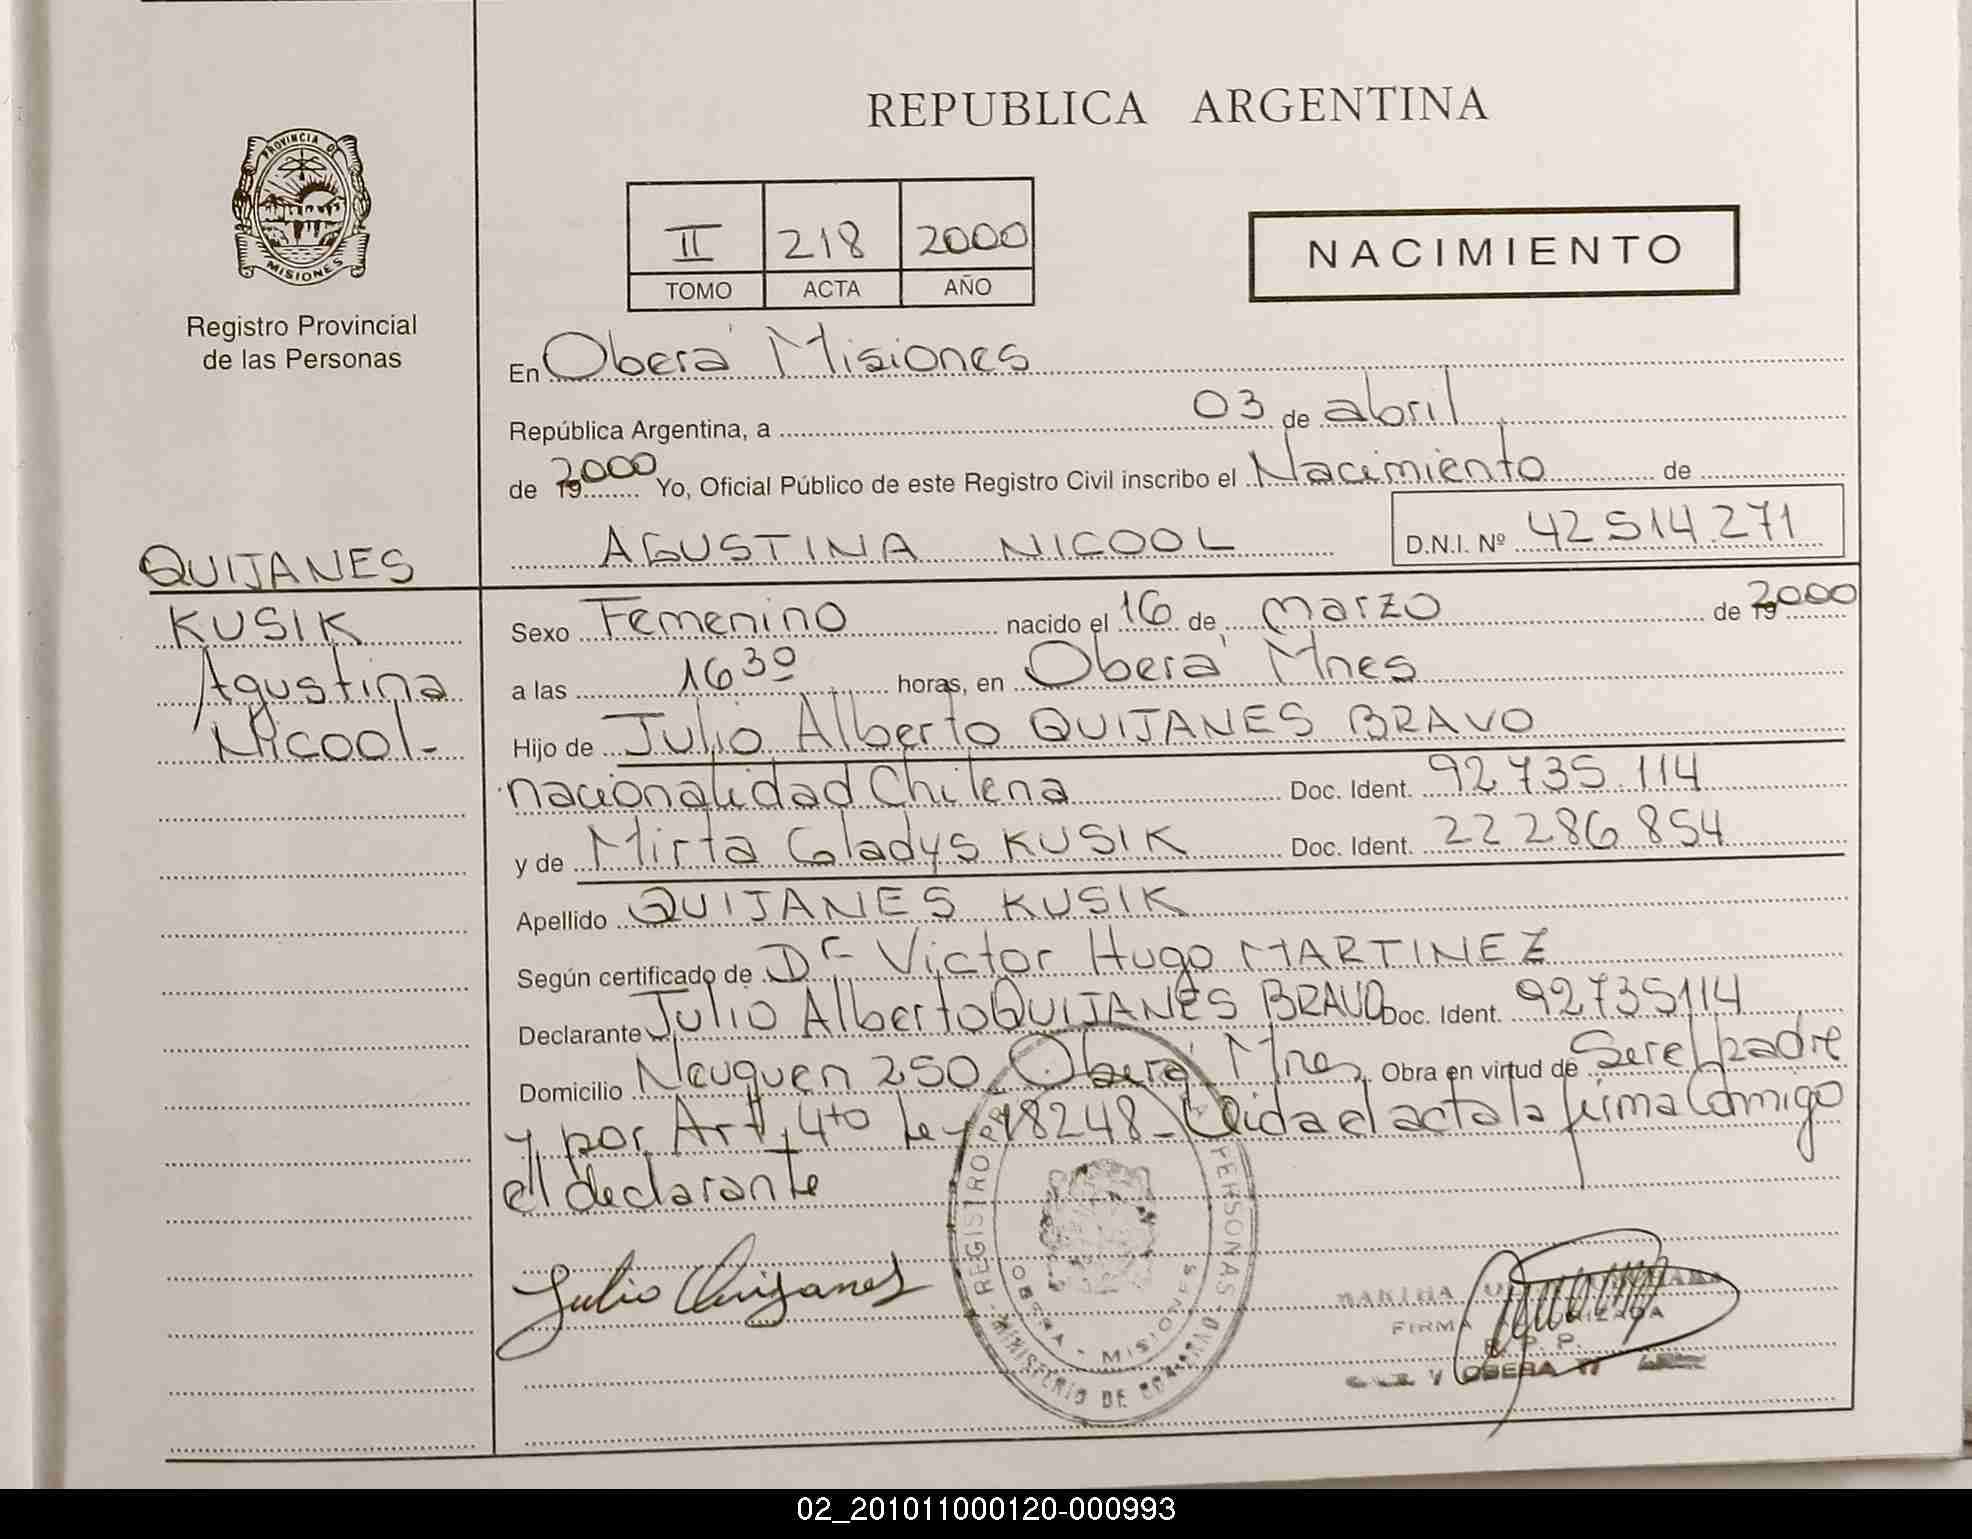 REPUBLICA ARGENTINA
PROVINCIA DE
MISIONES
Registro Provincial
de las Personas
II 218 2000
TOMO ACTA AÑO
NACIMIENTO
En Oberá Misiones
República Argentina, a 03 de abril
de 2000 Yo, Oficial Público de este Registro Civil inscribo el Nacimiento de
AGUSTINA NICOOL D.N.I. Nº 42 514.271
QUIJANES
KUSIK
Agustina
Nicool-
Sexo Femenino nacido el 16 de marzo de 2000
a las 16 30 horas, en Oberá Mnes
Hijo de Julio Alberto QUIJANES BRAVO
nacionalidad Chilena Doc. Ident. 92 735.114
y de Mirta Gladys KUSIK Doc. Ident. 22 286 854
Apellido QUIJANES KUSIK
Según certificado de Dr Victor Hugo MARTINEZ
Declarante Julio Alberto QUIJANES BRAVO Doc. Ident. 92735114
Domicilio Neuquen 250 Oberá Mnes. Obra en virtud de Ser el padre
y por Art. 4to Ley 18248- Leida el acta la firma Comigo
el declarante
Julio Quijanes
REGISTRO PERSONAS
MINISTERIO DE GOBIERNO
OBERA - MISIONES
FIRMA AUTORIZADA
R. P. P.
OBERA
02_201011000120-000993